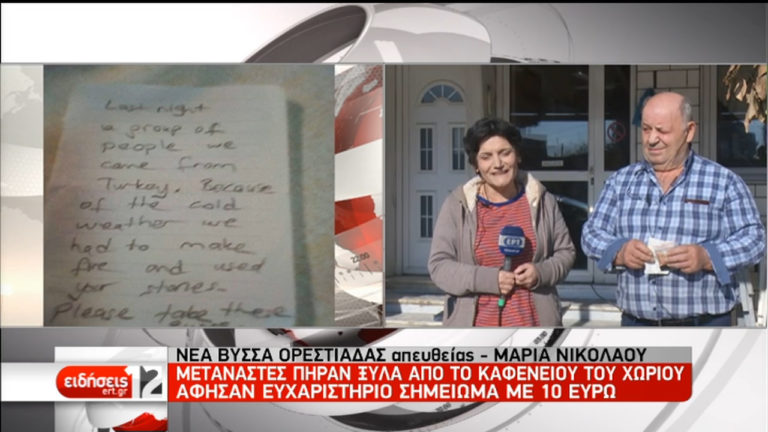 Last night
a group of
people we
came from
Turkey. Because
of the cold
weather we
had to make
fire and used
your stones.
Please take these
ΕΡΤ
22:00
ΝΕΑ ΒΥΣΣΑ ΟΡΕΣΤΙΑΔΑΣ απευθείας - ΜΑΡΙΑ ΝΙΚΟΛΑΟΥ
ειδήσεις 12
ert.gr
ΜΕΤΑΝΑΣΤΕΣ ΠΗΡΑΝ ΞΥΛΑ ΑΠΟ ΤΟ ΚΑΦΕΝΕΙΟΥ ΤΟΥ ΧΩΡΙΟΥ
ΑΦΗΣΑΝ ΕΥΧΑΡΙΣΤΗΡΙΟ ΣΗΜΕΙΩΜΑ ΜΕ 10 ΕΥΡΩ